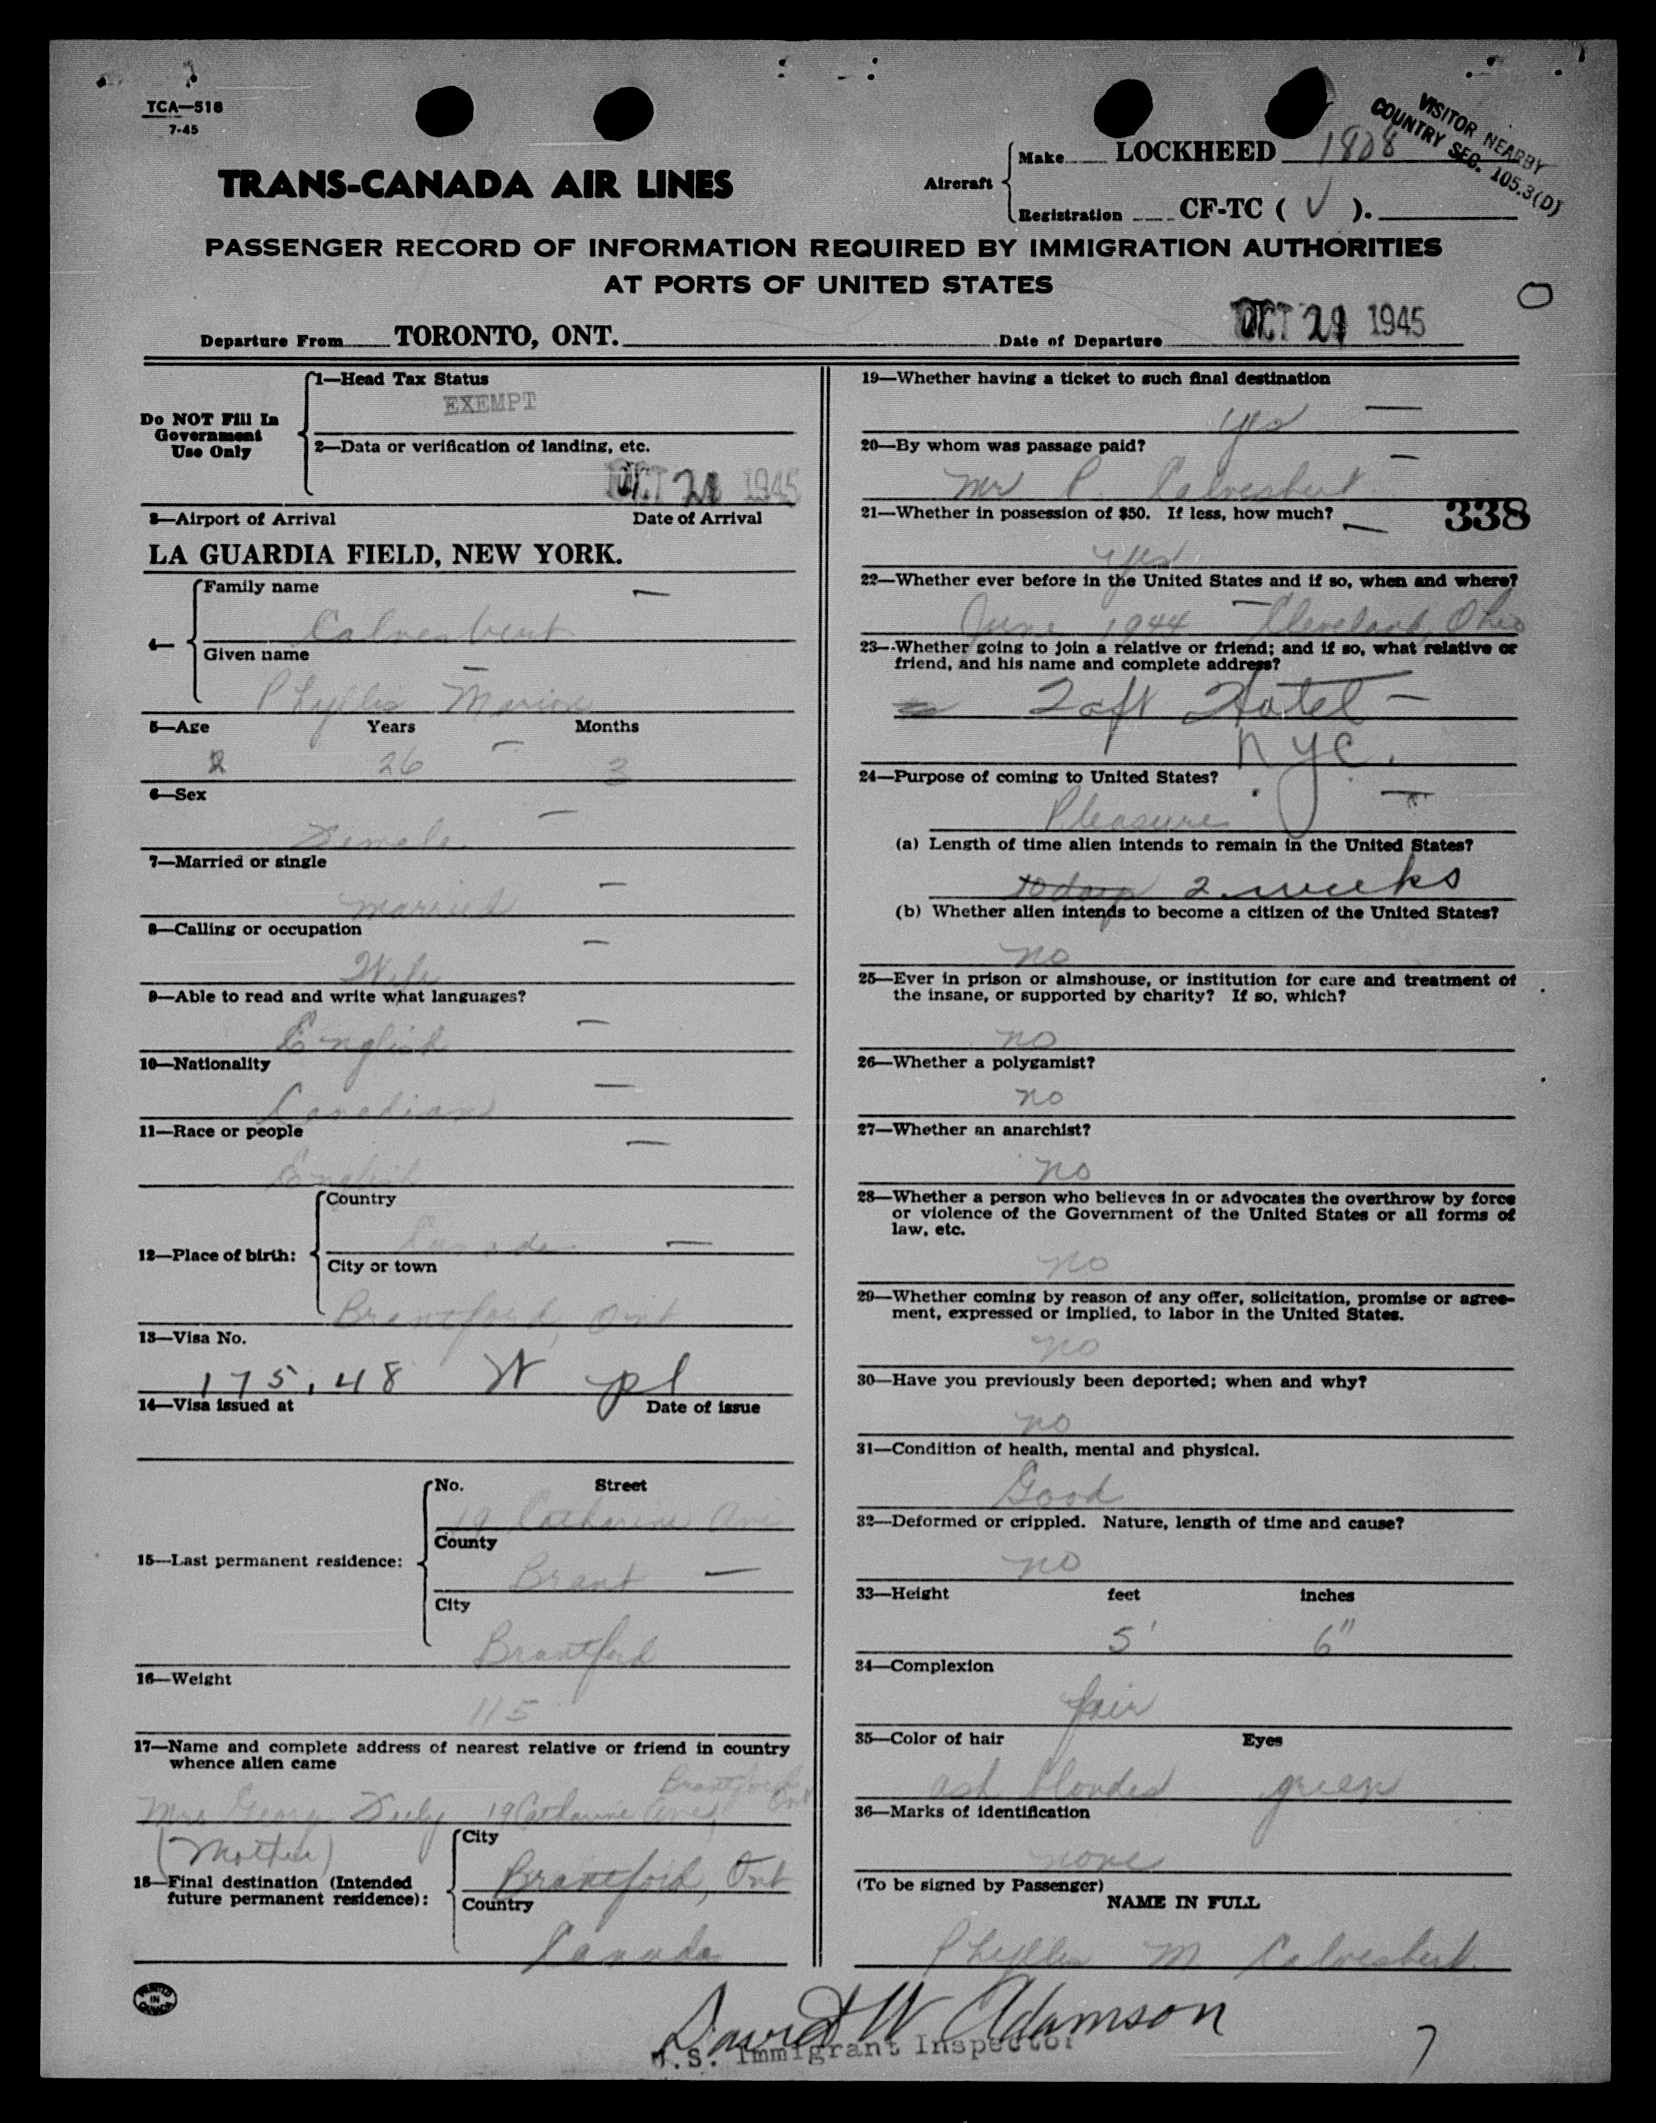 TCA—518
7-45
VISITOR NEARBY
COUNTRY SEC. 105.3(D)
TRANS-CANADA AIR LINES
Aircraft
Make LOCKHEED 1808
Registration CF-TC ( V ).
PASSENGER RECORD OF INFORMATION REQUIRED BY IMMIGRATION AUTHORITIES
AT PORTS OF UNITED STATES
Departure From TORONTO, ONT.
Date of Departure OCT 21 1945
Do NOT Fill In
Government
Use Only
1—Head Tax Status
EXEMPT
2—Data or verification of landing, etc.
OCT 21 1945
3—Airport of Arrival Date of Arrival
LA GUARDIA FIELD, NEW YORK.
4—
Family name —
Calvesbert
Given name —
Phyllis Marion
5—Age Years Months
26 — 3
6—Sex —
Female
7—Married or single —
Married
8—Calling or occupation —
Wife
9—Able to read and write what languages? —
English
10—Nationality —
Canadian
11—Race or people —
English
12—Place of birth:
Country
Canada —
City or town
Brantford, Ont
13—Visa No.
175.48 W pl
14—Visa issued at Date of issue
15—Last permanent residence:
No. Street
19 Catharine Ave
County
Brant —
City
Brantford
16—Weight
115
17—Name and complete address of nearest relative or friend in country
whence alien came
Brantford
Mrs George 19 Catharine Ave, Ont
(Mother)
18—Final destination (Intended
future permanent residence):
City
Brantford, Ont
Country
Canada
PRINTED
IN
CANADA
19—Whether having a ticket to such final destination
yes —
20—By whom was passage paid? —
Mr P. Calvesbert
21—Whether in possession of $50. If less, how much? — 338
yes
22—Whether ever before in the United States and if so, when and where?
June 1944 — Cleveland, Ohio
23—Whether going to join a relative or friend; and if so, what relative or
friend, and his name and complete address?
Taft Hotel —
NYC.
24—Purpose of coming to United States?
Pleasure —
(a) Length of time alien intends to remain in the United States?
10 days 2 weeks
(b) Whether alien intends to become a citizen of the United States?
no
25—Ever in prison or almshouse, or institution for care and treatment of
the insane, or supported by charity? If so, which?
no
26—Whether a polygamist?
no
27—Whether an anarchist?
no
28—Whether a person who believes in or advocates the overthrow by force
or violence of the Government of the United States or all forms of
law, etc.
no
29—Whether coming by reason of any offer, solicitation, promise or agree-
ment, expressed or implied, to labor in the United States.
no
30—Have you previously been deported; when and why?
no
31—Condition of health, mental and physical.
Good
32—Deformed or crippled. Nature, length of time and cause?
no
33—Height feet inches
5' 6"
34—Complexion
fair
35—Color of hair Eyes
ash blonded green
36—Marks of identification
none
(To be signed by Passenger)
NAME IN FULL
Phyllis M Calvesbert
David W Adamson
U.S. Immigrant Inspector
7